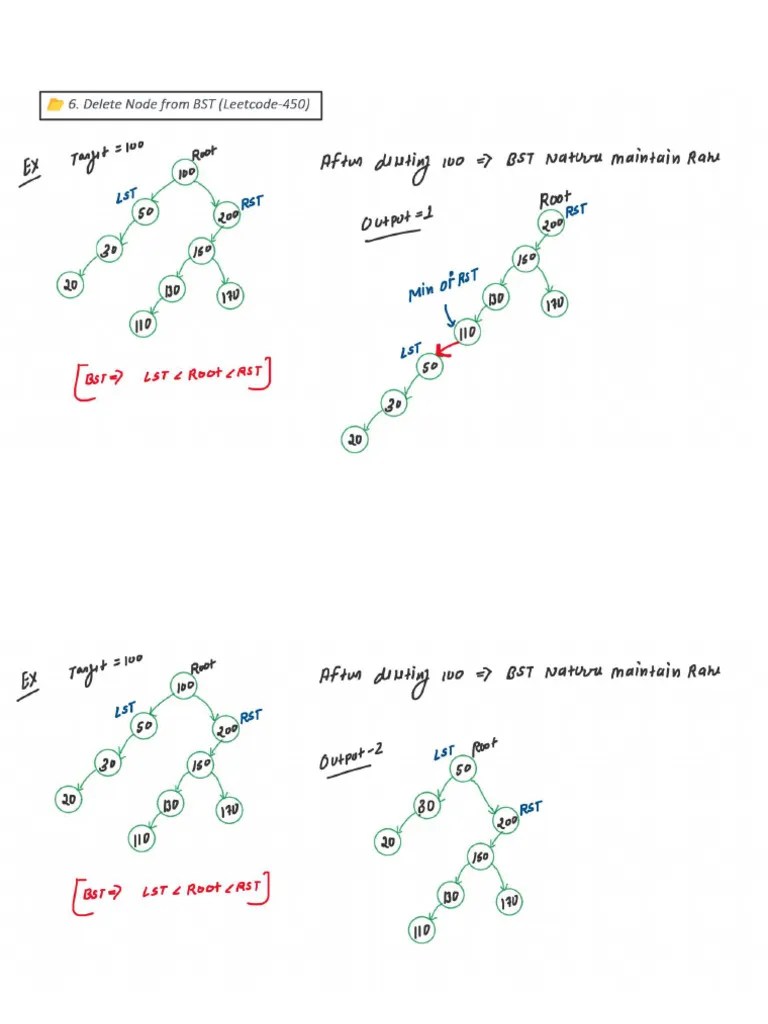 6. Delete Node from BST (Leetcode-450)
Ex Target = 100 Root
100
LST 50 200 RST
30 150
20 130 170
110
[BST => LST < Root < RST]
After deleting 100 => BST Nature maintain Rahe
Output = 1 Root
200 RST
150
Min of RST 130 170
110
LST 50
30
20
Ex Target = 100 Root
100
LST 50 200 RST
30 150
20 130 170
110
[BST => LST < Root < RST]
After deleting 100 => BST Nature maintain Rahe
Output-2 LST Root
50
30 200 RST
20 150
130 170
110